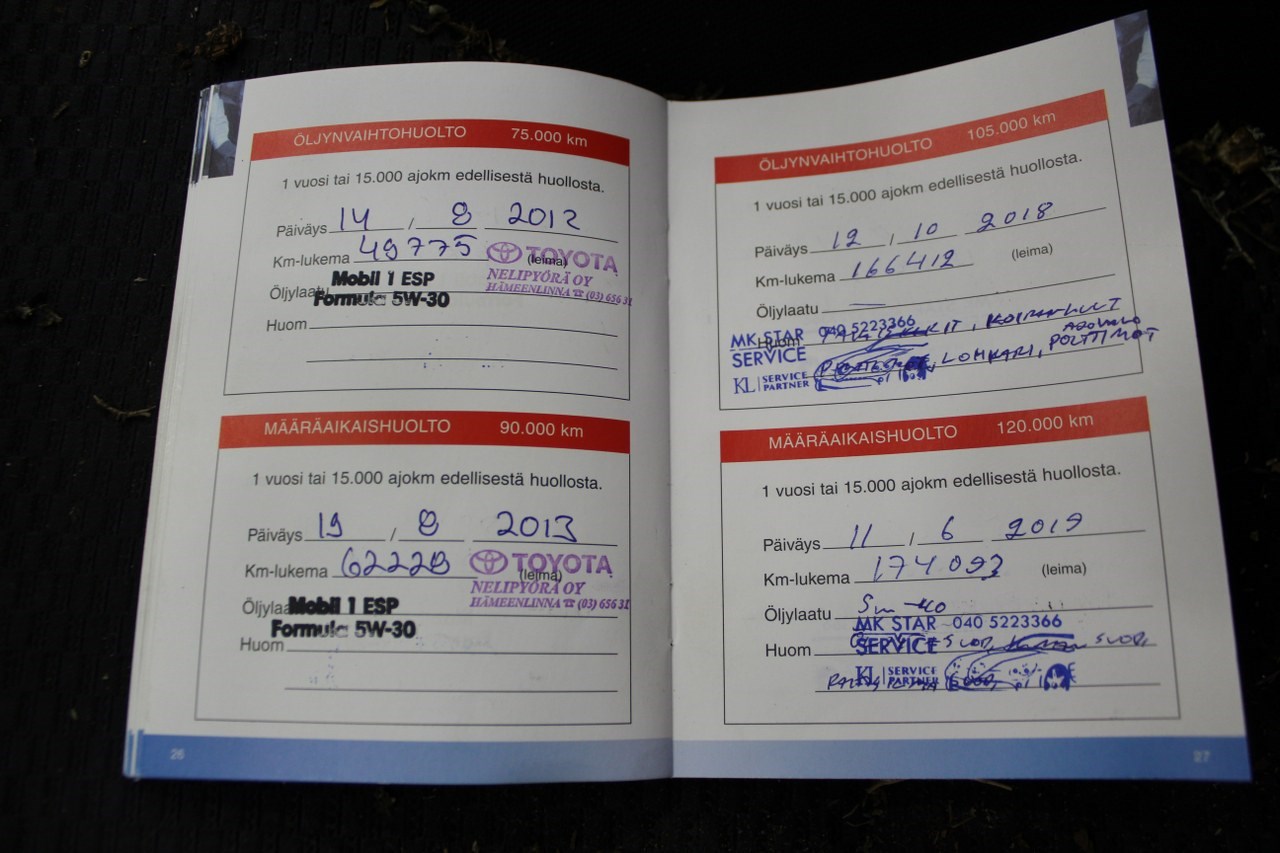 ÖLJYNVAIHTOHUOLTO 75.000 km
1 vuosi tai 15.000 ajokm edellisestä huollosta.
Päiväys 14 / 8 2012
Km-lukema 49775 (leima)
TOYOTA
NELIPYÖRÄ OY
HÄMEENLINNA ☎ (03) 656 31
Öljylaatu Mobil 1 ESP
Formula 5W-30
Huom
MÄÄRÄAIKAISHUOLTO 90.000 km
1 vuosi tai 15.000 ajokm edellisestä huollosta.
Päiväys 19 / 8 2013
Km-lukema 62228 (leima)
TOYOTA
NELIPYÖRÄ OY
HÄMEENLINNA ☎ (03) 656 31
Öljylaa Mobil 1 ESP
Formula 5W-30
Huom
26
ÖLJYNVAIHTOHUOLTO 105.000 km
1 vuosi tai 15.000 ajokm edellisestä huollosta.
Päiväys 12 / 10 2018
Km-lukema 166412 (leima)
Öljylaatu —
MK STAR 040 5223366
Huom KOIRANLUUT
SERVICE
LOHKARI, AJOVALO POLTTIMOT
KL SERVICE PARTNER
MÄÄRÄAIKAISHUOLTO 120.000 km
1 vuosi tai 15.000 ajokm edellisestä huollosta.
Päiväys 11 / 6 2019
Km-lukema 174093 (leima)
Öljylaatu 5W-40
MK STAR 040 5223366
Huom SERVICE SUOD, SUOD,
KL SERVICE PARTNER
27